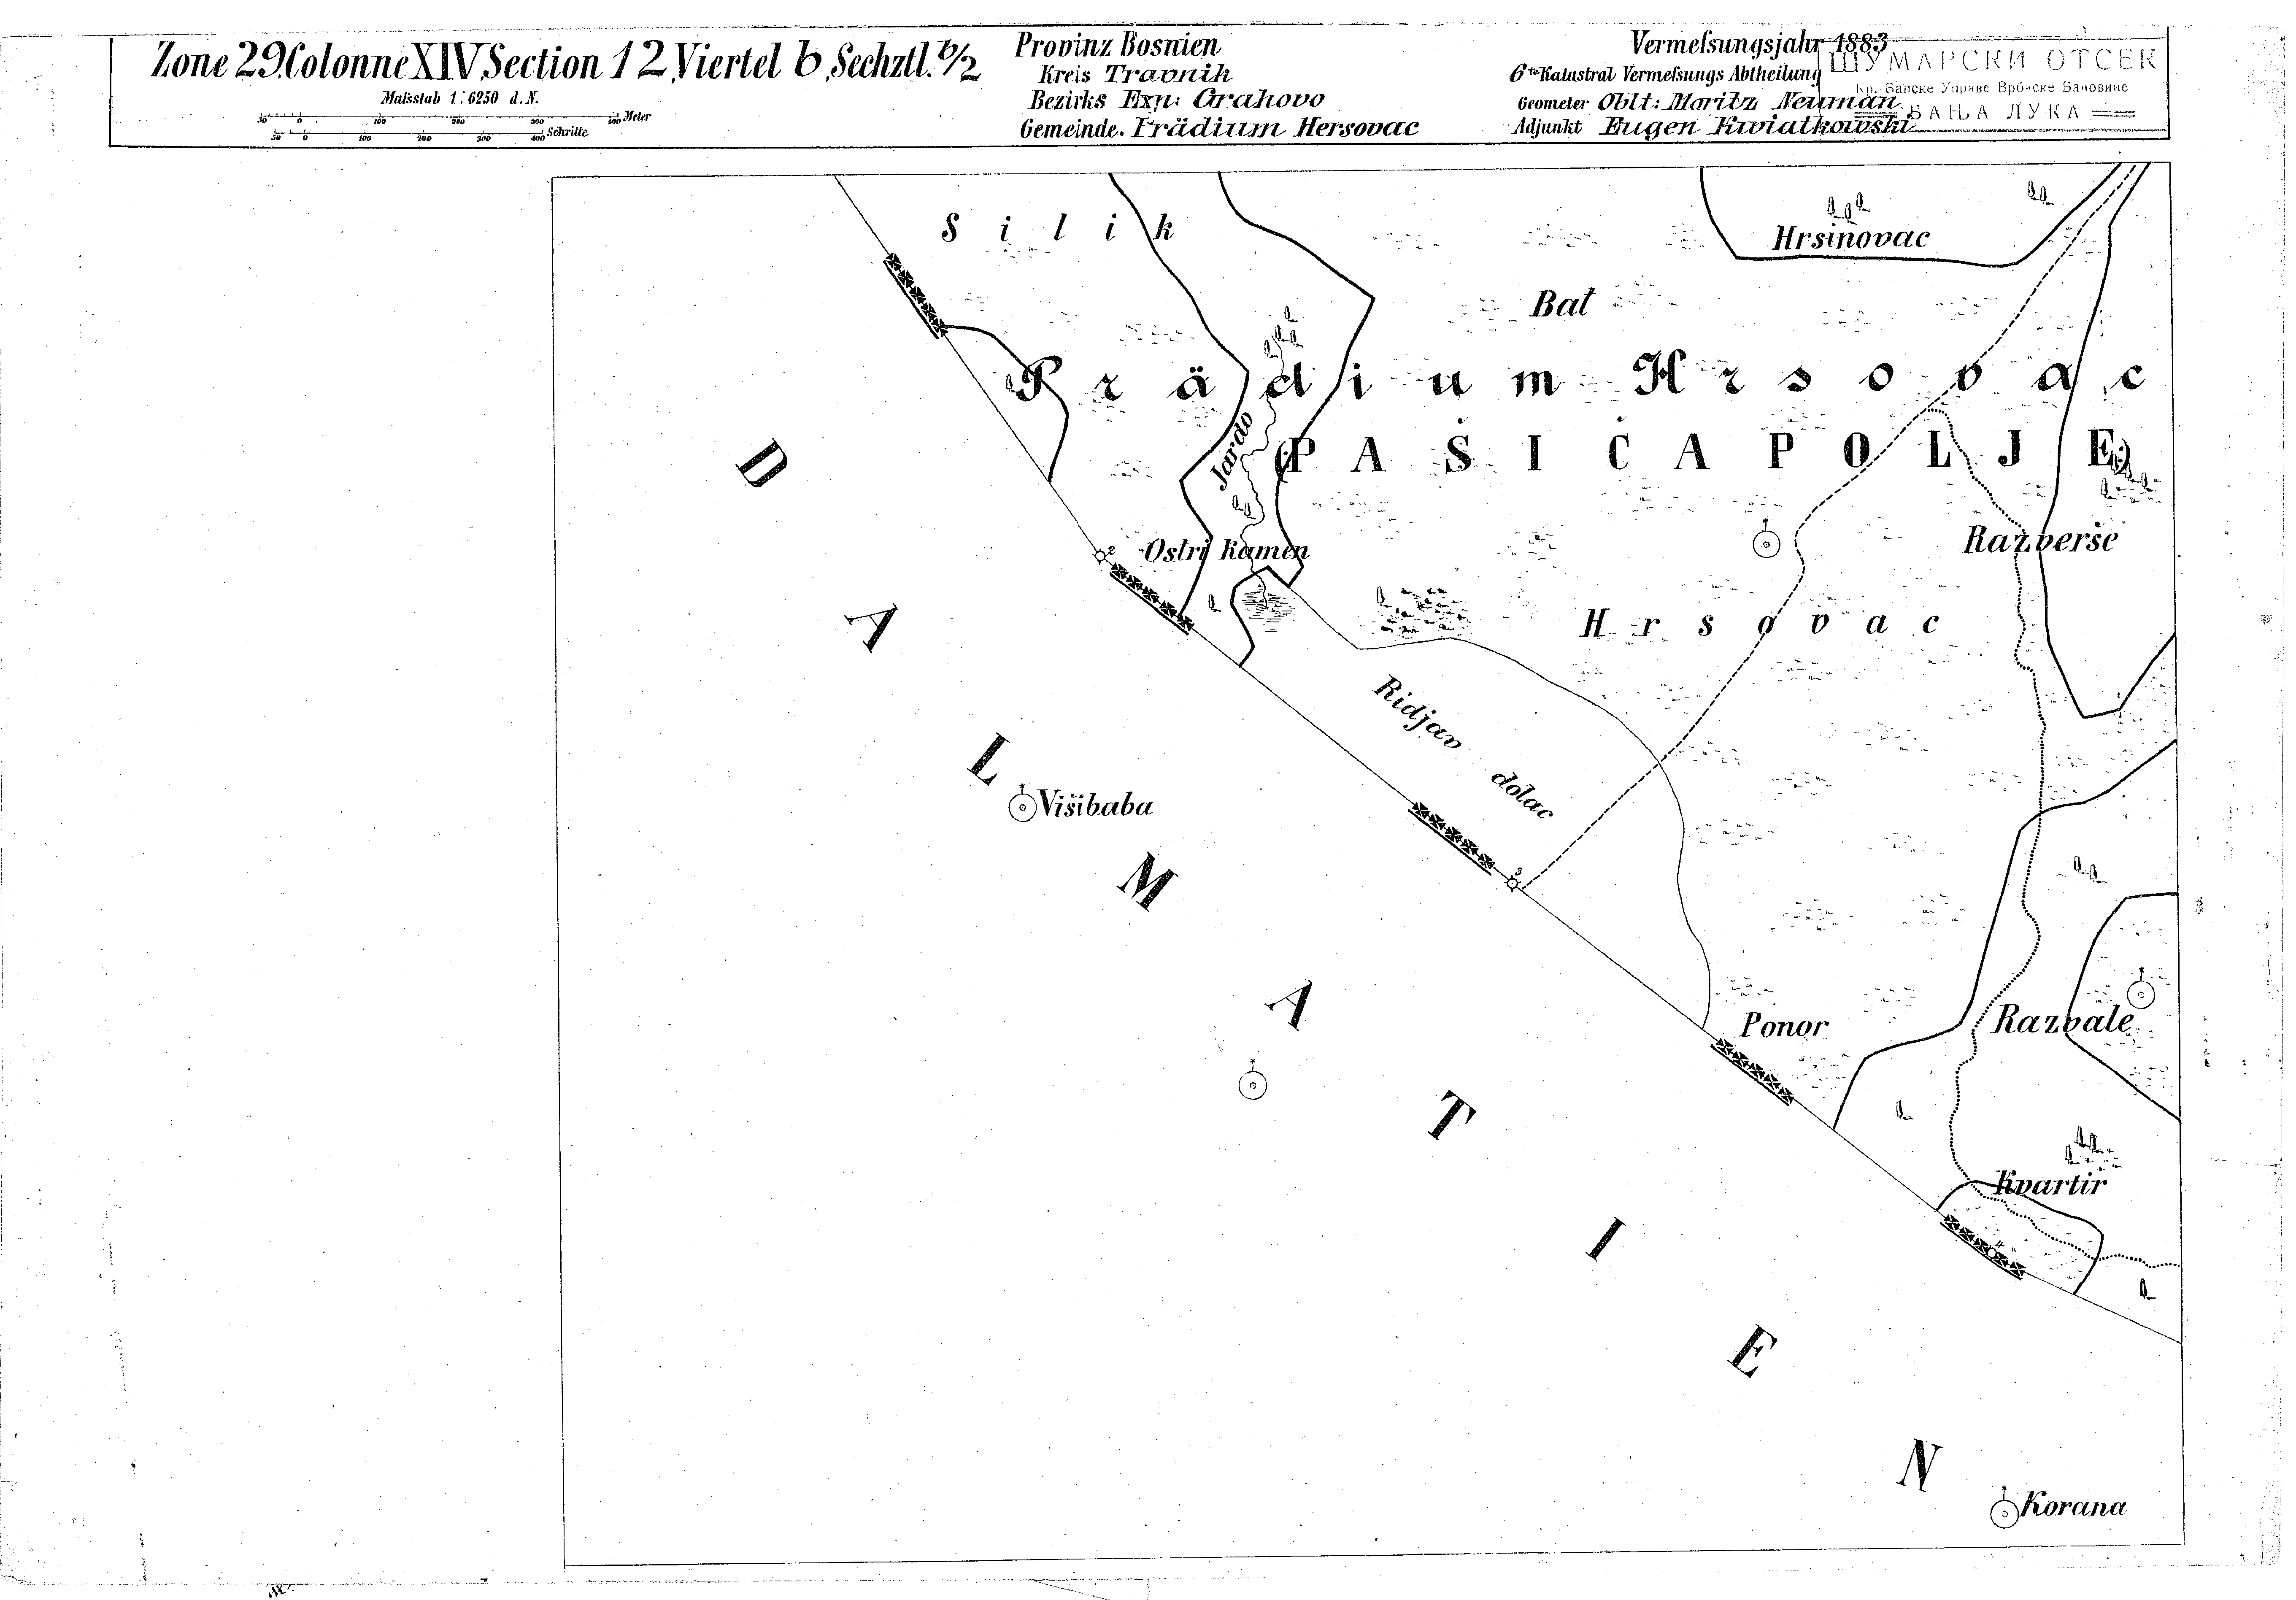 Zone 29. Colonne XIV, Section 12, Viertel b, Sechztl. b/2
Maſsstab 1:6250 d. N.
50 0 100 200 300 500 Meter
50 0 100 200 300 400 Schritte
Provinz Bosnien
Kreis Travnik
Bezirks Exp: Grahovo
Gemeinde. Prädium Hersovac
Vermeſsungsjahr 1883
6te Katastral Vermeſsungs Abtheilung
Geometer Oblt: Moritz Neuman
Adjunkt Eugen Kwiatkowski
ШУМАРСКИ ОТСЕК
Кр. Банске Управе Врбаске Бановине
БАЊА ЛУКА
Silik
Hrsinovac
Bat
Prädium Hrsovac
(PAŠIĆAPOLJE)
Jardo
2
Ostri kamen
Razberše
Hrsovac
Ridjav dolac
3
Višibaba
Ponor
Razvale
Kvartir
4
DALMATIEN
Korana